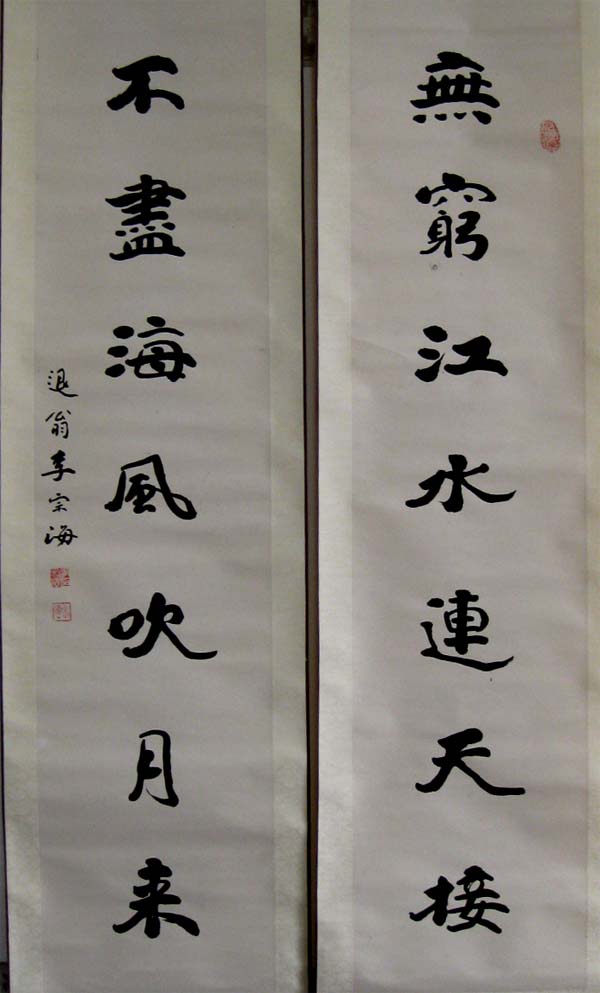 無窮江水連天接
不盡海風吹月来
退翁李宗海